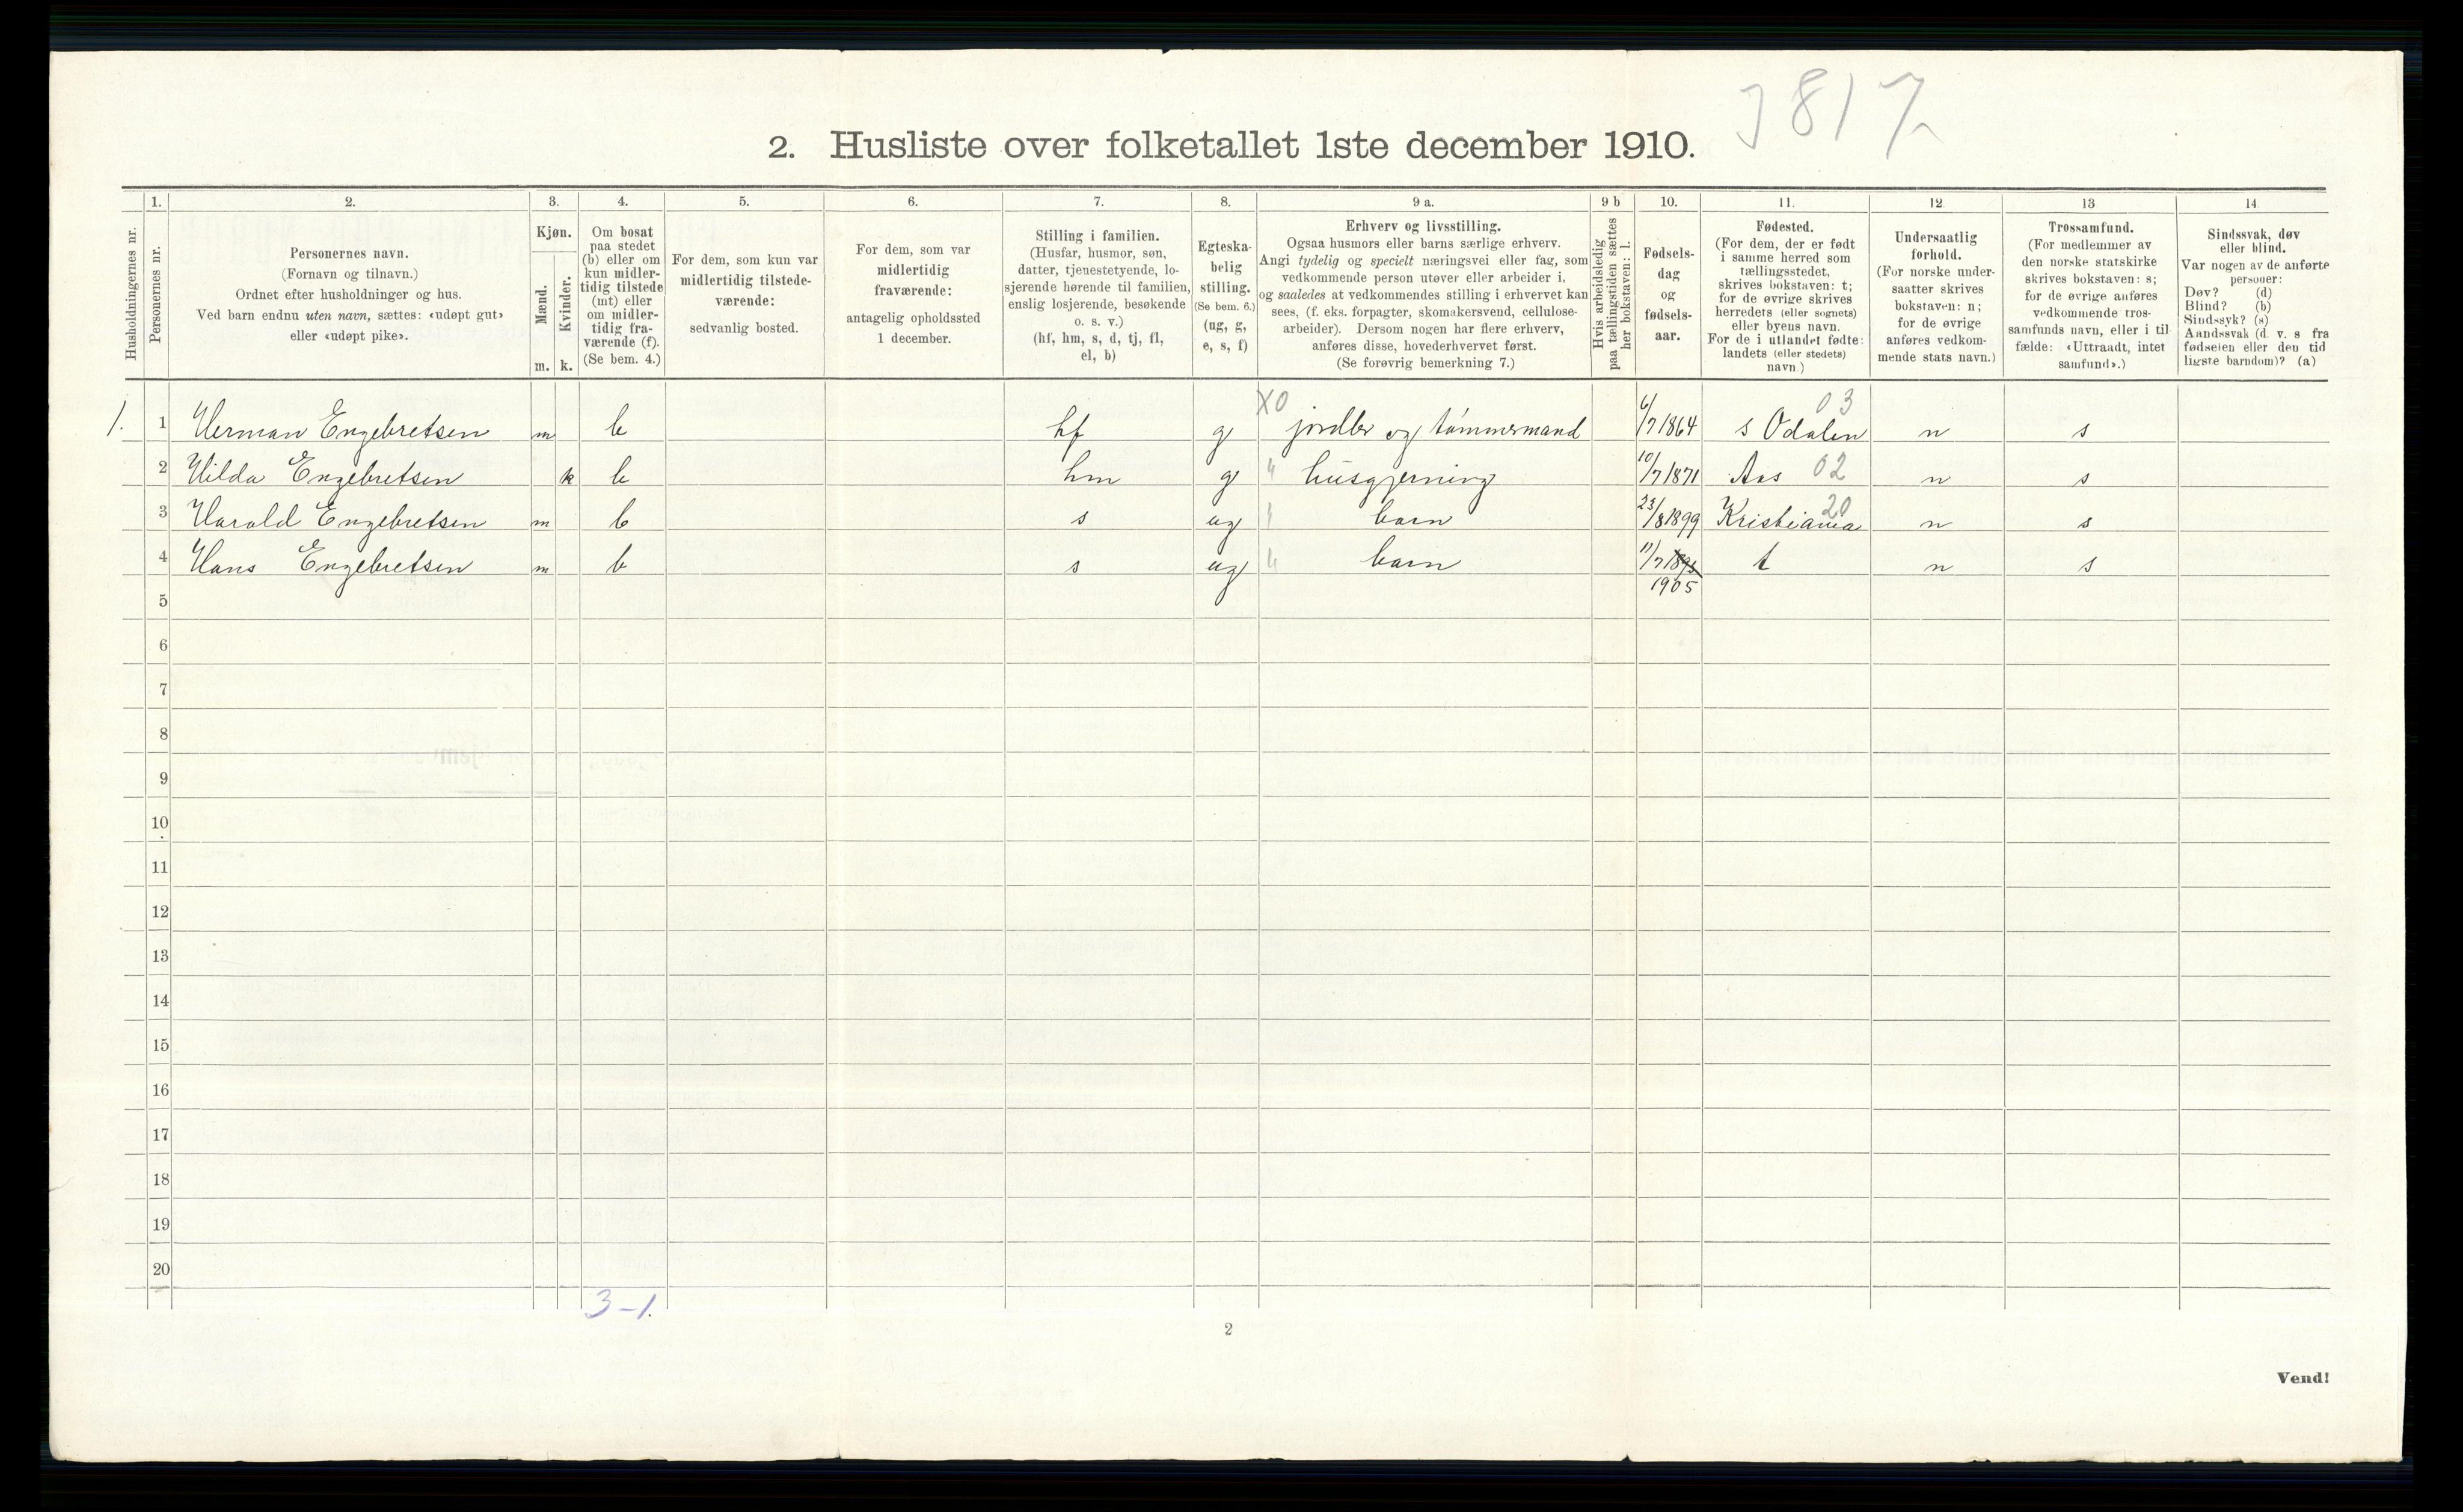 3817
2. Husliste over folketallet 1ste december 1910.
Husholdningernes nr.
1.
Personernes nr.
2.
Personernes navn.
(Fornavn og tilnavn.)
Ordnet efter husholdninger og hus.
Ved barn endnu uten navn, sættes: «udøpt gut»
eller «udøpt pike».
3.
Kjøn.
Mænd.
Kvinder.
m. k.
4.
Om bosat
paa stedet
(b) eller om
kun midler-
tidig tilstede
(mt) eller
om midler-
tidig fra-
værende (f).
(Se bem. 4.)
5.
For dem, som kun var
midlertidig tilstede-
værende:
sedvanlig bosted.
6.
For dem, som var
midlertidig
fraværende:
antagelig opholdssted
1 december.
7.
Stilling i familien.
(Husfar, husmor, søn,
datter, tjenestetyende, lo-
sjerende hørende til familien,
enslig losjerende, besøkende
o. s. v.)
(hf, hm, s, d, tj, fl,
el, b)
8.
Egteska-
belig
stilling.
(Se bem. 6.)
(ug, g,
e, s, f)
9 a.
Erhverv og livsstilling.
Ogsaa husmors eller barns særlige erhverv.
Angi tydelig og specielt næringsvei eller fag, som
vedkommende person utøver eller arbeider i,
og saaledes at vedkommendes stilling i erhvervet kan
sees, (f. eks. forpagter, skomakersvend, cellulose-
arbeider). Dersom nogen har flere erhverv,
anføres disse, hovederhvervet først.
(Se forøvrig bemerkning 7.)
9 b
Hvis arbeidsledig
paa tællingstiden sættes
her bokstaven: l.
10.
Fødsels-
dag
og
fødsels-
aar.
11.
Fødested.
(For dem, der er født
i samme herred som
tællingsstedet,
skrives bokstaven: t;
for de øvrige skrives
herredets (eller sognets)
eller byens navn.
For de i utlandet fødte:
landets (eller stedets)
navn.)
12
Undersaatlig
forhold.
(For norske under-
saatter skrives
bokstaven: n;
for de øvrige
anføres vedkom-
mende stats navn.)
13
Trossamfund.
(For medlemmer av
den norske statskirke
skrives bokstaven: s;
for de øvrige anføres
vedkommende tros-
samfunds navn, eller i til
fælde: «Uttraadt, intet
samfund».)
14
Sindssvak, døv
eller blind.
Var nogen av de anførte
personer:
Døv? (d)
Blind? (b)
Sindssyk? (s)
Aandssvak (d. v. s fra
fødselen eller den tid
ligste barndom)? (a)
X0 03
1. 1 Herman Engebretsen m b hf g jordbr og tømmermand 6/7 1864 s Odalen n s
2 Hilda Engebretsen k b hm g " husgjerning 10/7 1871 Aas 02 n s
3 Harald Engebretsen m b s ug " barn 23/8 1899 Kristiania 20 n s
4 Hans Engebretsen m b s ug " barn 11/7 1895 t n s
5 1905
6
7
8
9
10
11
12
13
14
15
16
17
18
19
20
3-1.
2
Vend!